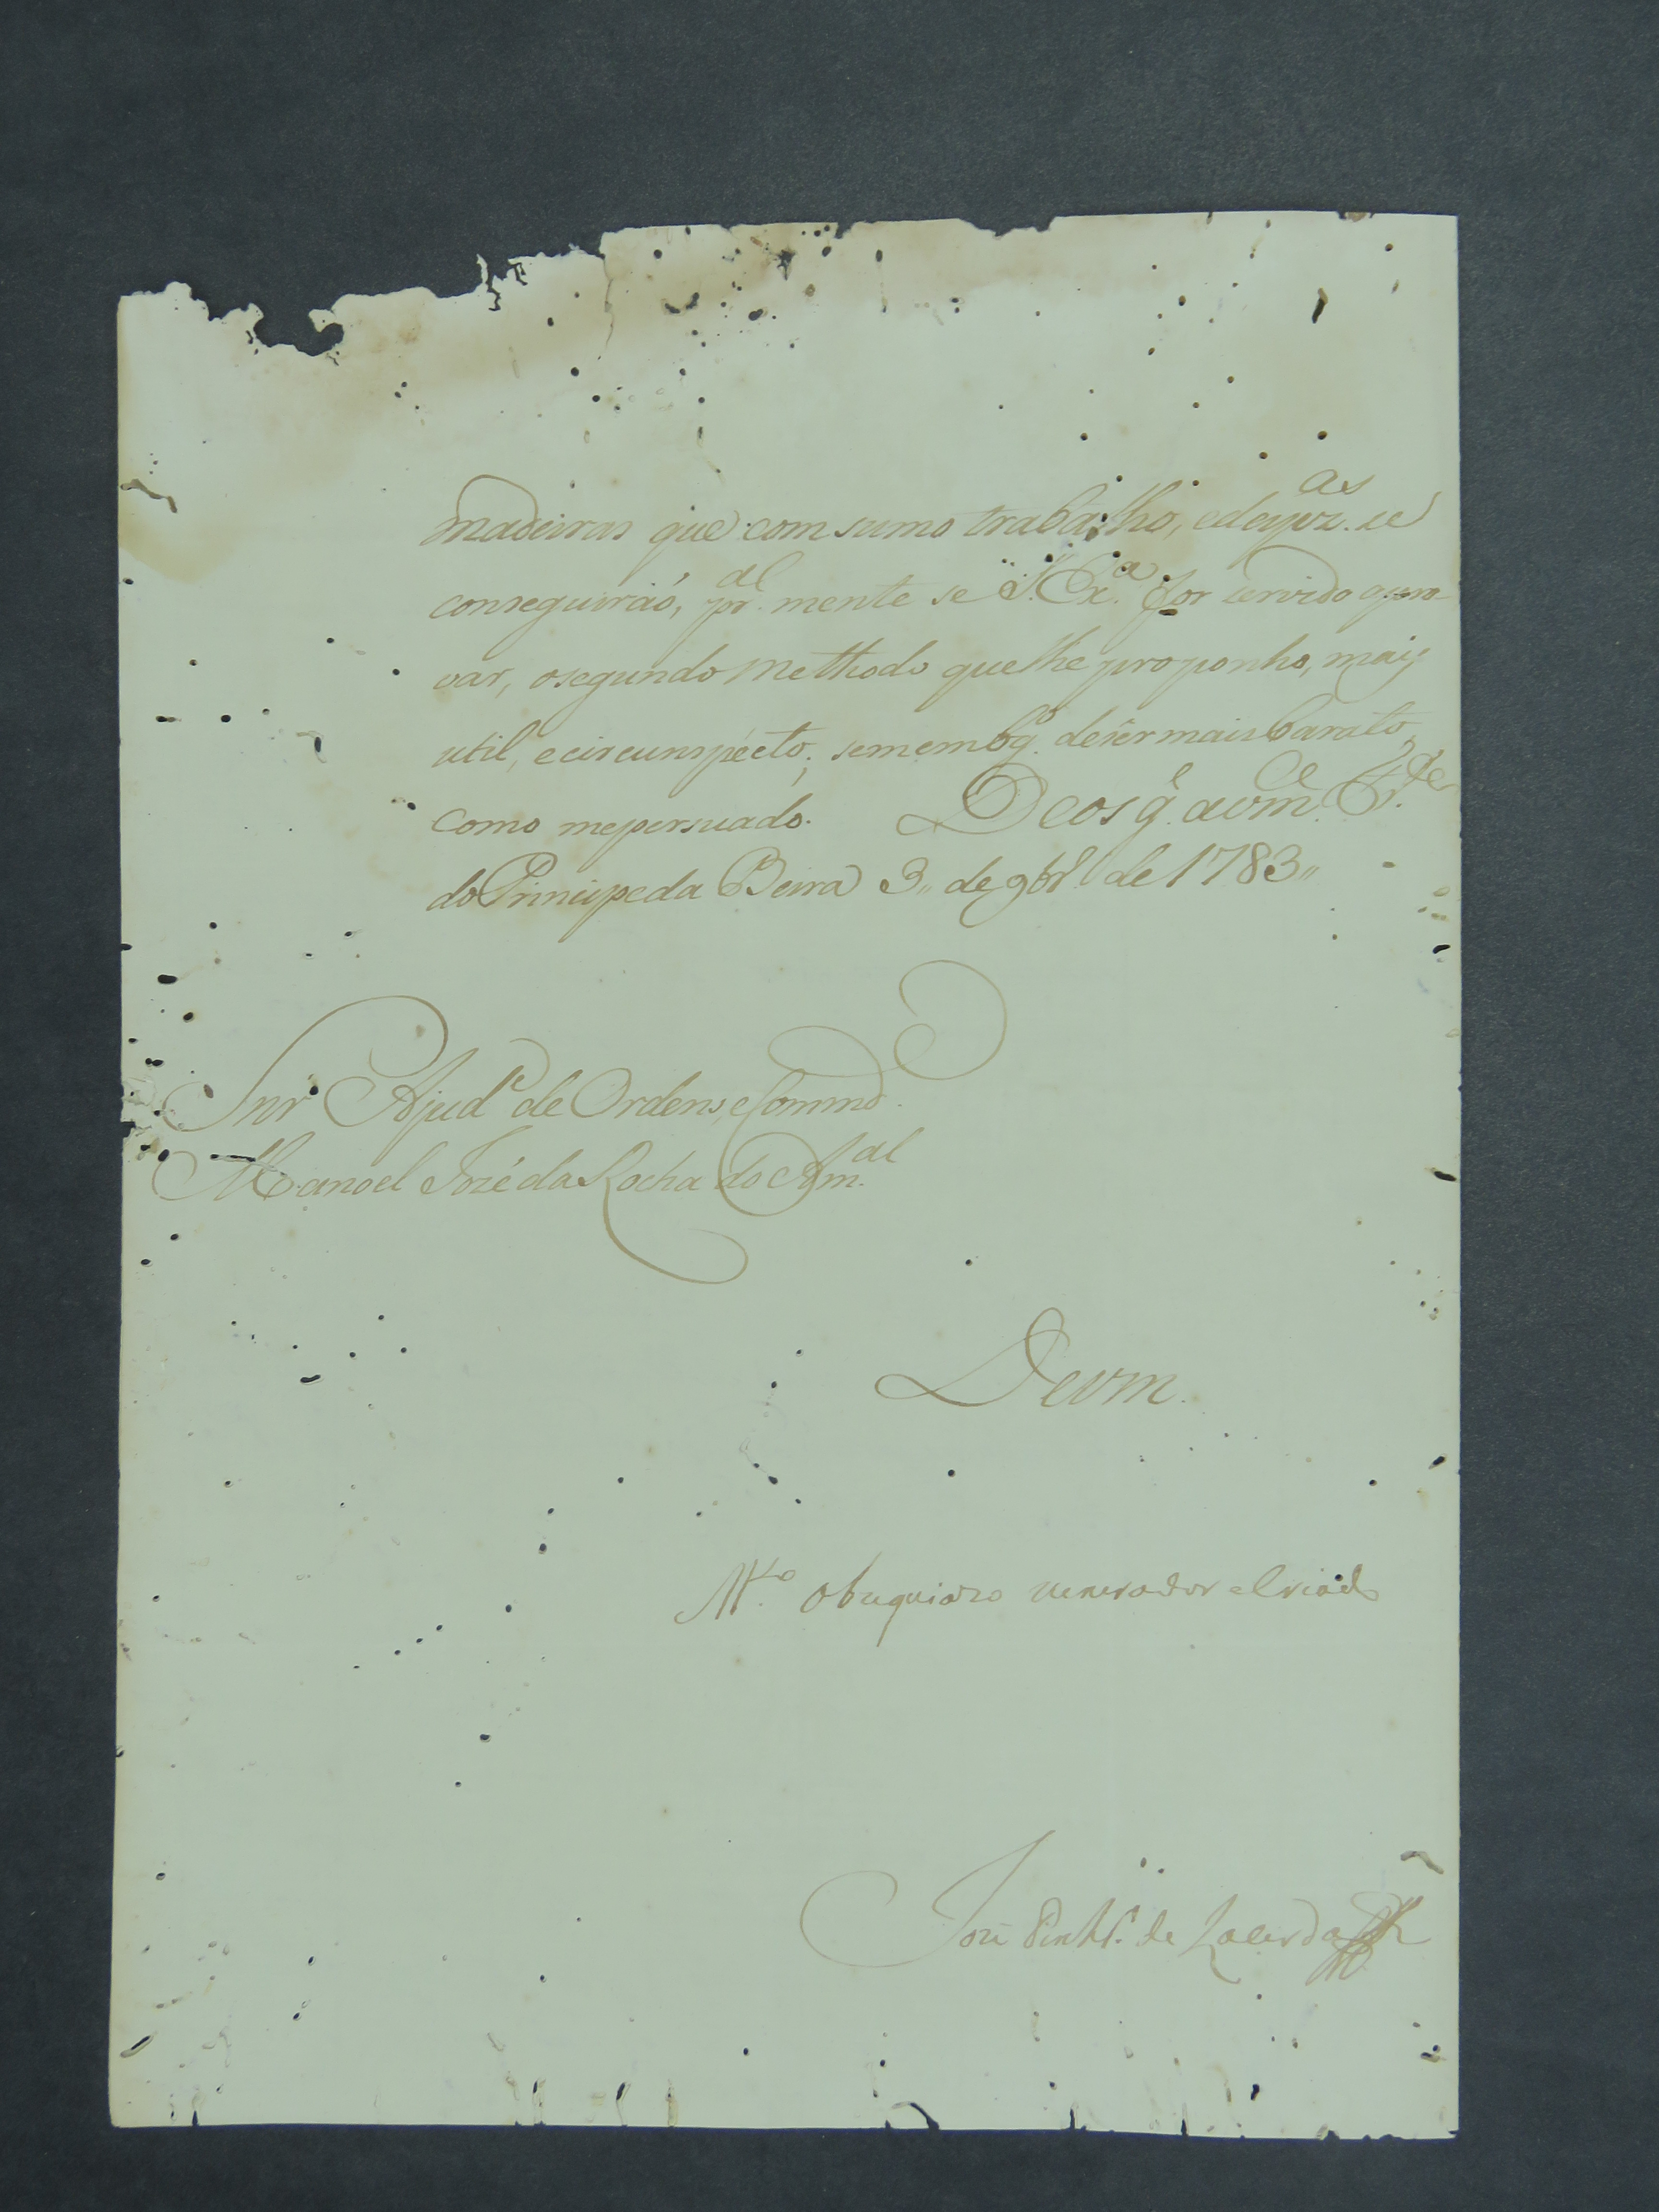 madeiras que com sumo trabalho, edespz.as se
conseguiraó, pr.al mente se S. Ex.a for servido apro-
var, osegundo Methodo quelhe proponho, mais
util, ecircunspecto; semembg.o desêr mais barato,
como mepersuado. Deos g.e avm.ce F.te
do Principe da Beira 3,, de 9br.o de 1783,,
Snr Ajud.e de Ordens, e Comm.d
Manoel Jozé da Rocha do Am.al
Devm.
M.to obzequiozo venerador e Criado
Joze Pinhr.o de Lacerda